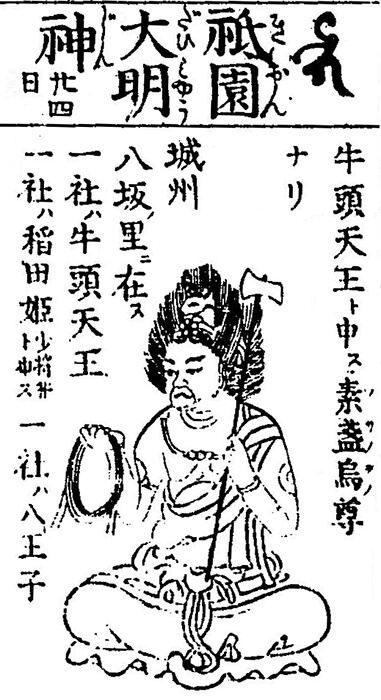 祇園
ぎをん
大明
だいミやう
神
じん
廿四日
牛頭天王ト申ス素盞烏尊
ソサノヲノ
ナリ
城州
八坂ノ里ニ在ス
一社ハ牛頭天王
一社ハ稲田姫少将井ト申ス一社ハ八王子